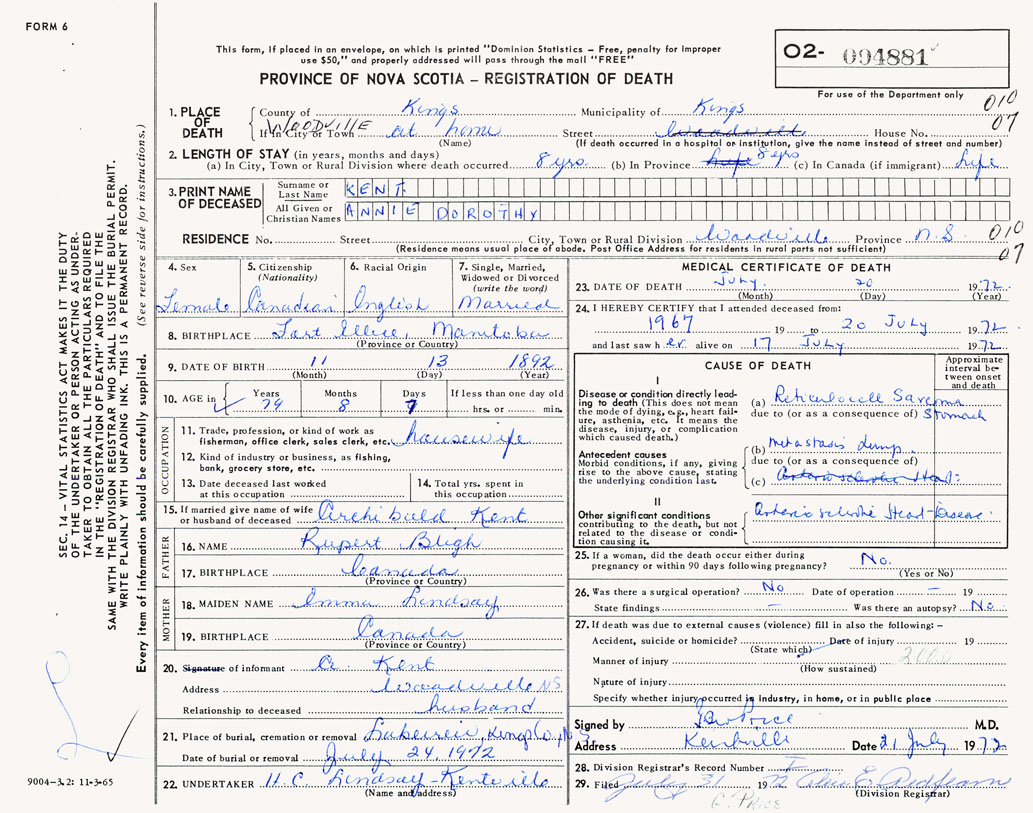 FORM 6
This form, if placed in an envelope, on which is printed "Dominion Statistics – Free, penalty for improper
use $50," and properly addressed will pass through the mail "FREE"
PROVINCE OF NOVA SCOTIA – REGISTRATION OF DEATH
O2- 094881
For use of the Department only
010
07
1. PLACE OF DEATH
County of Kings Municipality of Kings
If in City or Town WOODVILLE at home Street Woodville House No.
(Name) (If death occurred in a hospital or institution, give the name instead of street and number)
2. LENGTH OF STAY (in years, months and days)
(a) In City, Town or Rural Division where death occurred 8 yrs. (b) In Province life 8 yrs (c) In Canada (if immigrant) life
3. PRINT NAME OF DECEASED
Surname or Last Name KENT
All Given or Christian Names ANNIE DOROTHY
RESIDENCE No. Street City, Town or Rural Division Woodville Province N.S
(Residence means usual place of abode. Post Office Address for residents in rural parts not sufficient)
010
07
4. Sex Female
5. Citizenship (Nationality) Canadian
6. Racial Origin English
7. Single, Married, Widowed or Divorced (write the word) Married
8. BIRTHPLACE Fort Ellice, Manitoba
(Province or Country)
9. DATE OF BIRTH 11 13 1892
(Month) (Day) (Year)
10. AGE in Years 79 Months 8 Days 7 If less than one day old hrs. or min.
OCCUPATION
11. Trade, profession, or kind of work as
fisherman, office clerk, sales clerk, etc. housewife
12. Kind of industry or business, as fishing,
bank, grocery store, etc.
13. Date deceased last worked
at this occupation
14. Total yrs. spent in
this occupation
15. If married give name of wife
or husband of deceased Archibald Kent
FATHER
16. NAME Rupert Bligh
17. BIRTHPLACE Canada
(Province or Country)
MOTHER
18. MAIDEN NAME Emma Lindsay
19. BIRTHPLACE Canada
(Province or Country)
20. Signature of informant A. Kent
Address Woodville NS
Relationship to deceased husband
21. Place of burial, cremation or removal Lakeview, Kings Co., N.S
Date of burial or removal July 24, 1972
22. UNDERTAKER H.C. Lindsay - Kentville
(Name and address)
MEDICAL CERTIFICATE OF DEATH
23. DATE OF DEATH July 20 1972
(Month) (Day) (Year)
24. I HEREBY CERTIFY that I attended deceased from:
1967 19 to 20 July 1972
and last saw her alive on 17 July 1972
CAUSE OF DEATH
Approximate interval between onset and death
I
Disease or condition directly leading to death (This does not mean the mode of dying, e.g., heart failure, asthenia, etc. It means the disease, injury, or complication which caused death.)
(a) Reticulocell Sarcoma
due to (or as a consequence of) Stomach
Antecedent causes
Morbid conditions, if any, giving rise to the above cause, stating the underlying condition last.
(b) metastasis
due to (or as a consequence of)
(c)
II
Other significant conditions contributing to the death, but not related to the disease or condition causing it.
Heart Disease
25. If a woman, did the death occur either during
pregnancy or within 90 days following pregnancy? No.
(Yes or No)
26. Was there a surgical operation? No Date of operation – 19
State findings – Was there an autopsy? No
27. If death was due to external causes (violence) fill in also the following: –
Accident, suicide or homicide? Date of injury 19
(State which)
Manner of injury 2000
(How sustained)
Nature of injury
Specify whether injury occurred in industry, in home, or in public place
Signed by Price M.D.
Address Kentville Date 21 July 1972
28. Division Registrar's Record Number
29. Filed July 31 1972
(Division Registrar)
PRICE
SEC. 14 – VITAL STATISTICS ACT MAKES IT THE DUTY
OF THE UNDERTAKER OR PERSON ACTING AS UNDERTAKER TO OBTAIN ALL THE PARTICULARS REQUIRED
IN THE "REGISTRATION OF DEATH" AND TO FILE THE
SAME WITH THE DIVISION REGISTRAR WHO SHALL ISSUE THE BURIAL PERMIT.
WRITE PLAINLY WITH UNFADING INK. THIS IS A PERMANENT RECORD.
Every item of information should be carefully supplied. (See reverse side for instructions.)
9004-3.2: 11-3-65